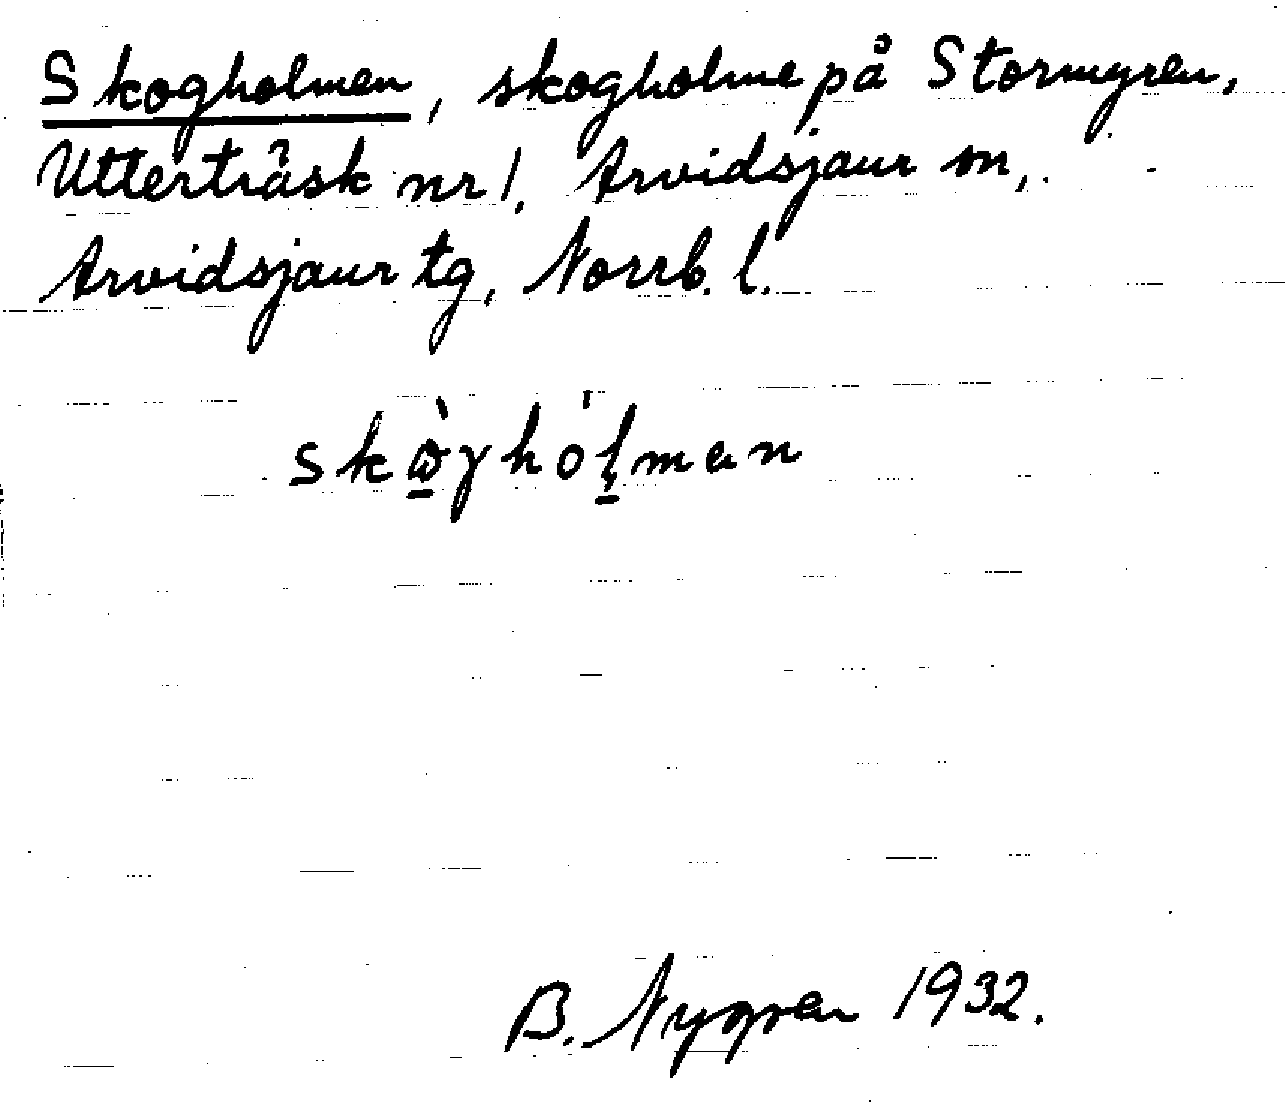 Skogholmen, skogholme på Stormyren,
Utterträsk nr 1. Arvidsjaur sn,
Arvidsjaur tg, Norrb. l.
skὼ̲γhól̲̣men
B. Nygren 1932.